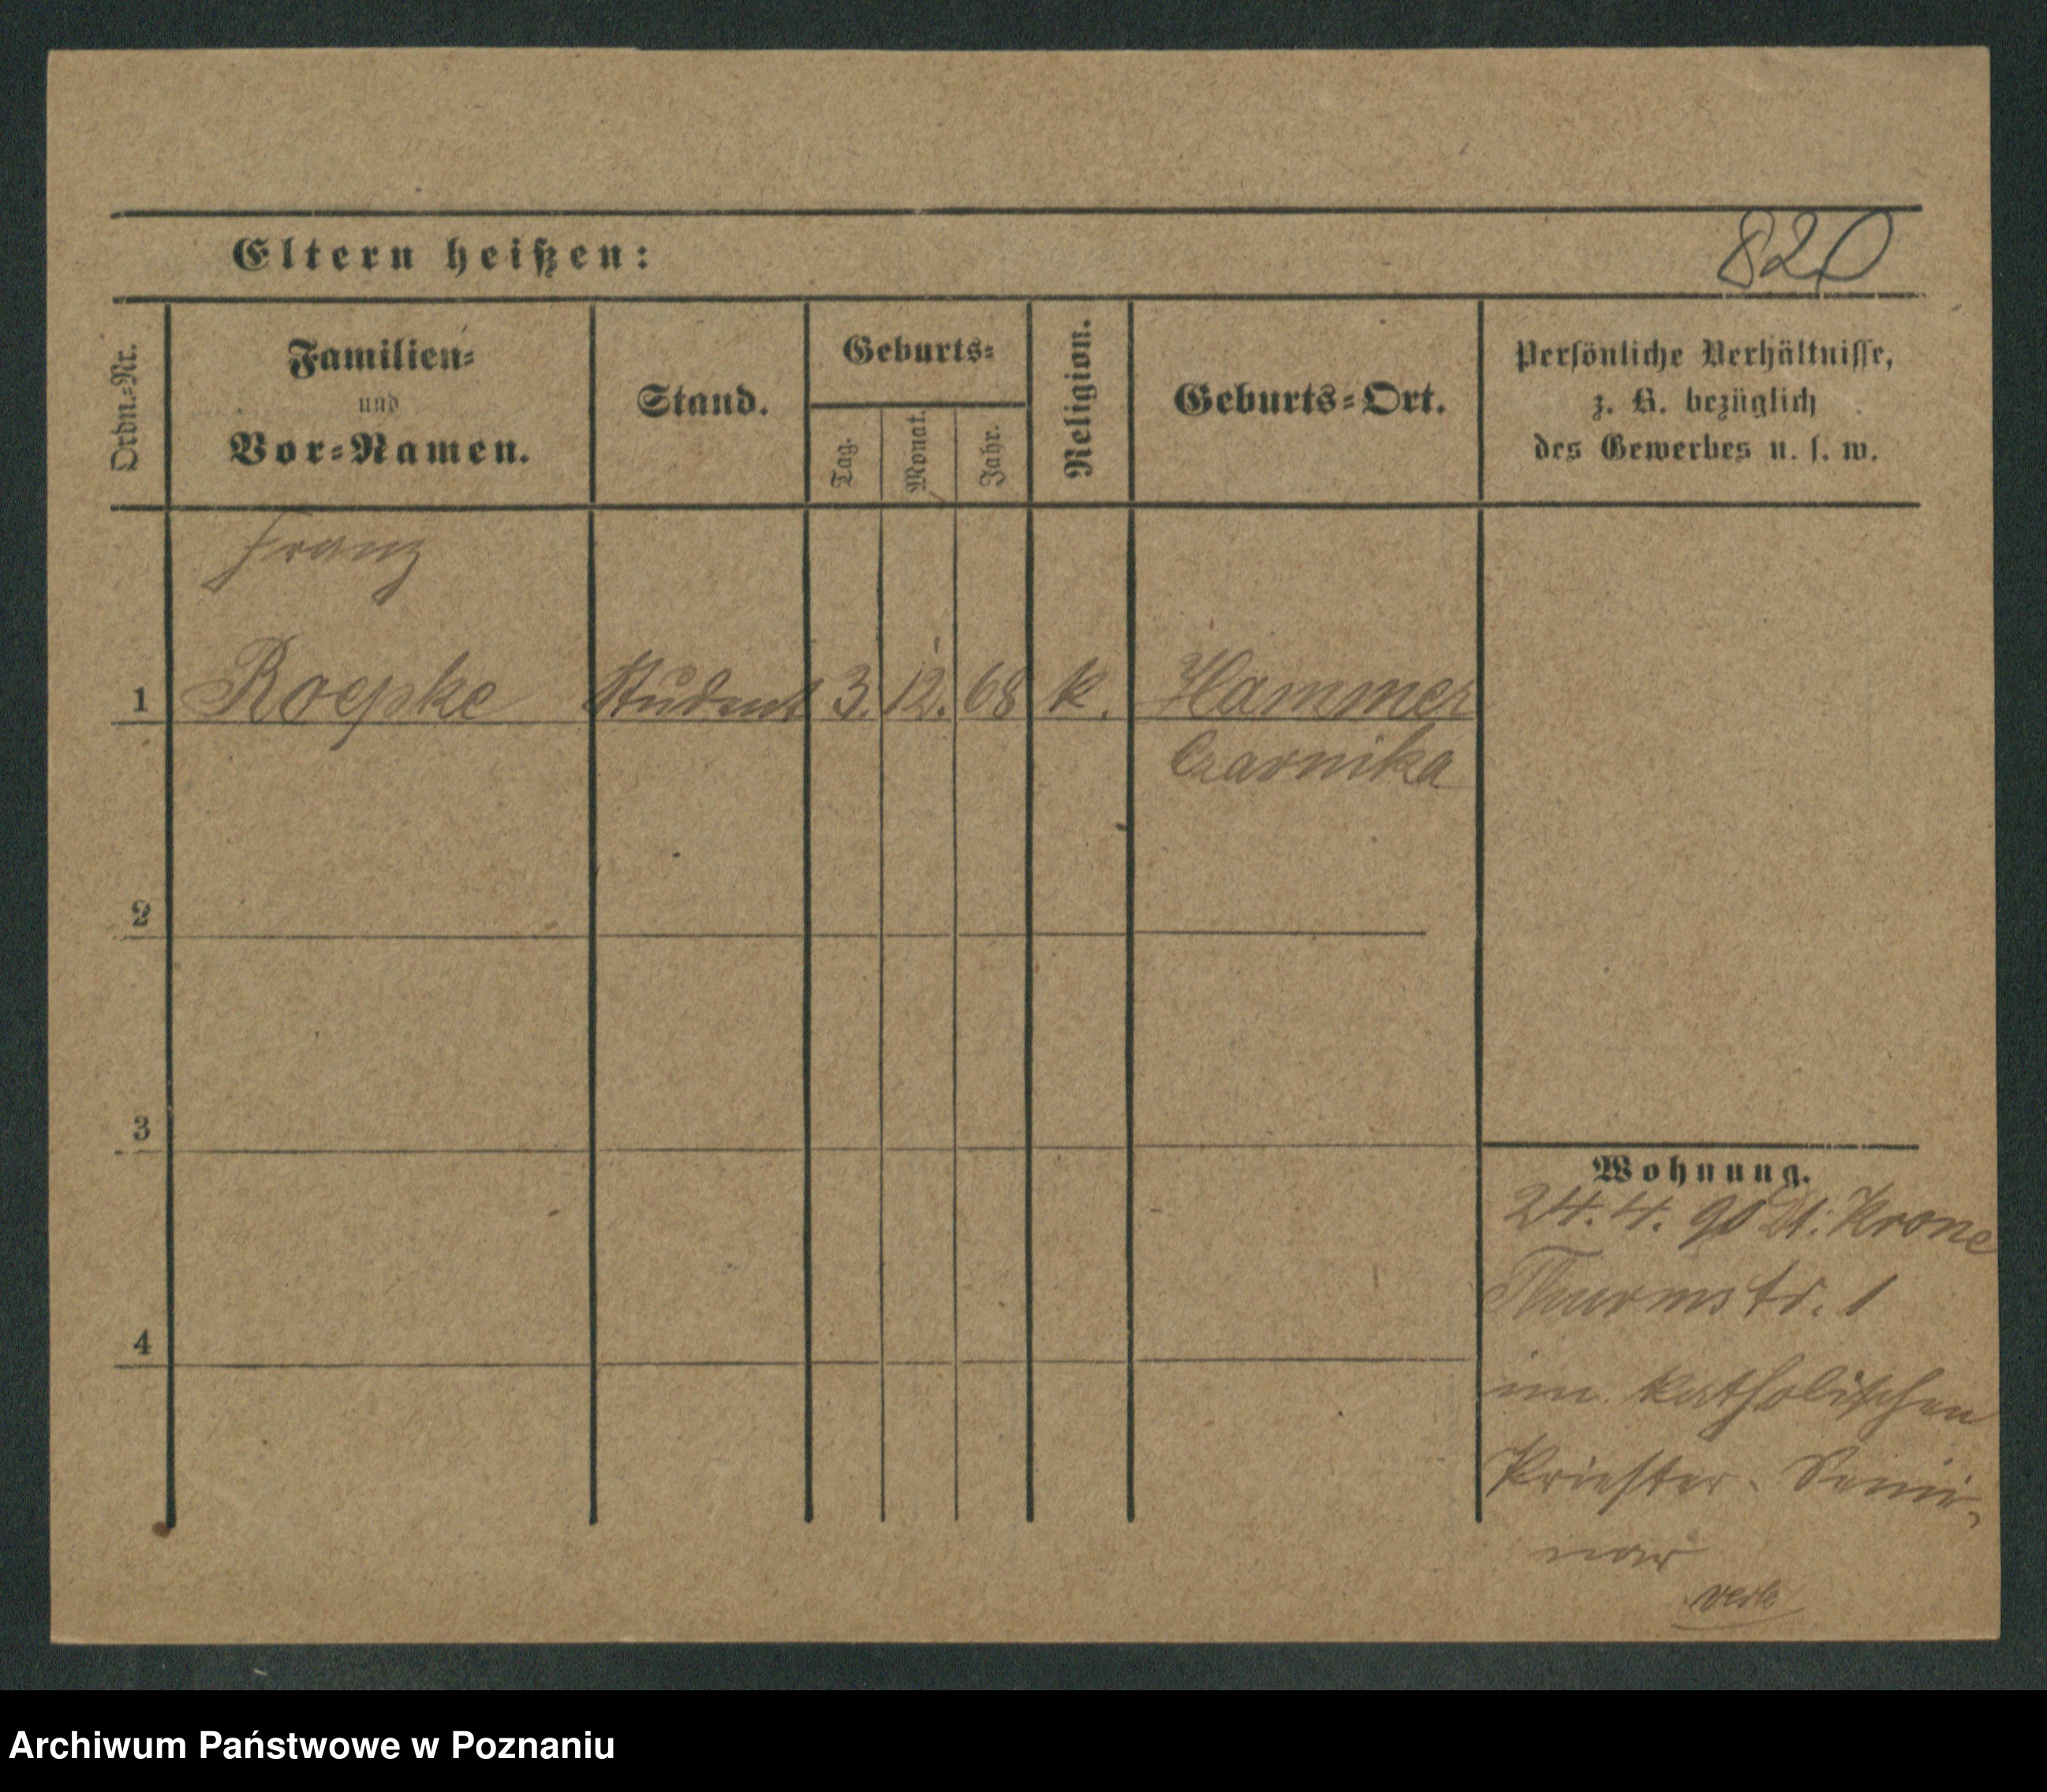 820
Eltern heißen:
Ordn.-Nr.
Familien-
und
Vor-Namen.
Stand.
Geburts-
Tag.
Monat.
Jahr.
Religion.
Geburts-Ort.
Persönliche Verhältnisse,
z. B. bezüglich
des Gewerbes u. s. w.
Franz
1 Roepke Student 3. 12. 68 k. Hammer
Czarnika
2
3
4
Wohnung.
24. 4. 90 Dt. Krone
Thurmstr. 1
im katholischen
Priester-Semi-
nar
Archiwum Państwowe w Poznaniu